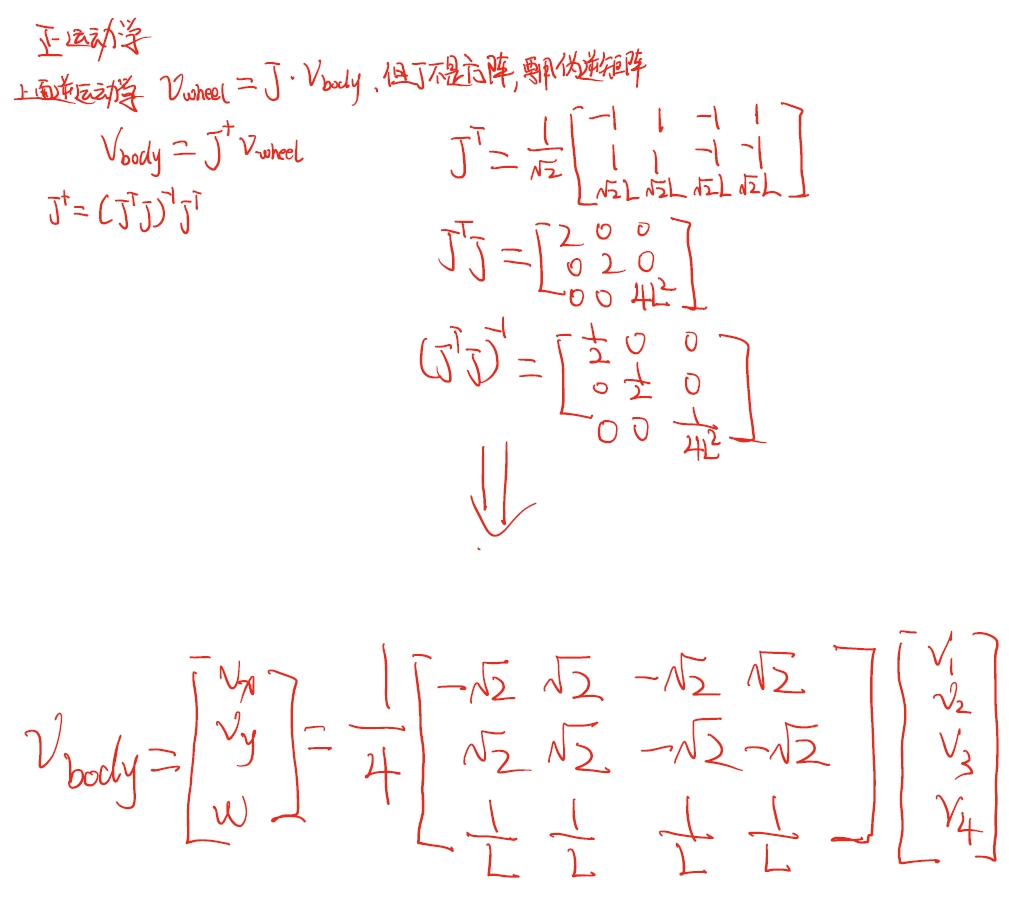 正运动学
上面逆运动学 V_wheel = J · V_body, 但J不是方阵, 要用伪逆矩阵
V_body = J⁺ V_wheel
J⁺ = (JᵀJ)⁻¹Jᵀ
Jᵀ = 1/√2 [ -1 1 -1 1
1 1 -1 -1
√2L √2L √2L √2L ]
JᵀJ = [ 2 0 0
0 2 0
0 0 4L² ]
(JᵀJ)⁻¹ = [ 1/2 0 0
0 1/2 0
0 0 1/4L² ]
⇓
V_body = [ Vx Vy w ] = 1/4 [ -√2 √2 -√2 √2
√2 √2 -√2 -√2
1/L 1/L 1/L 1/L ] [ V₁ V₂ V₃ V₄ ]